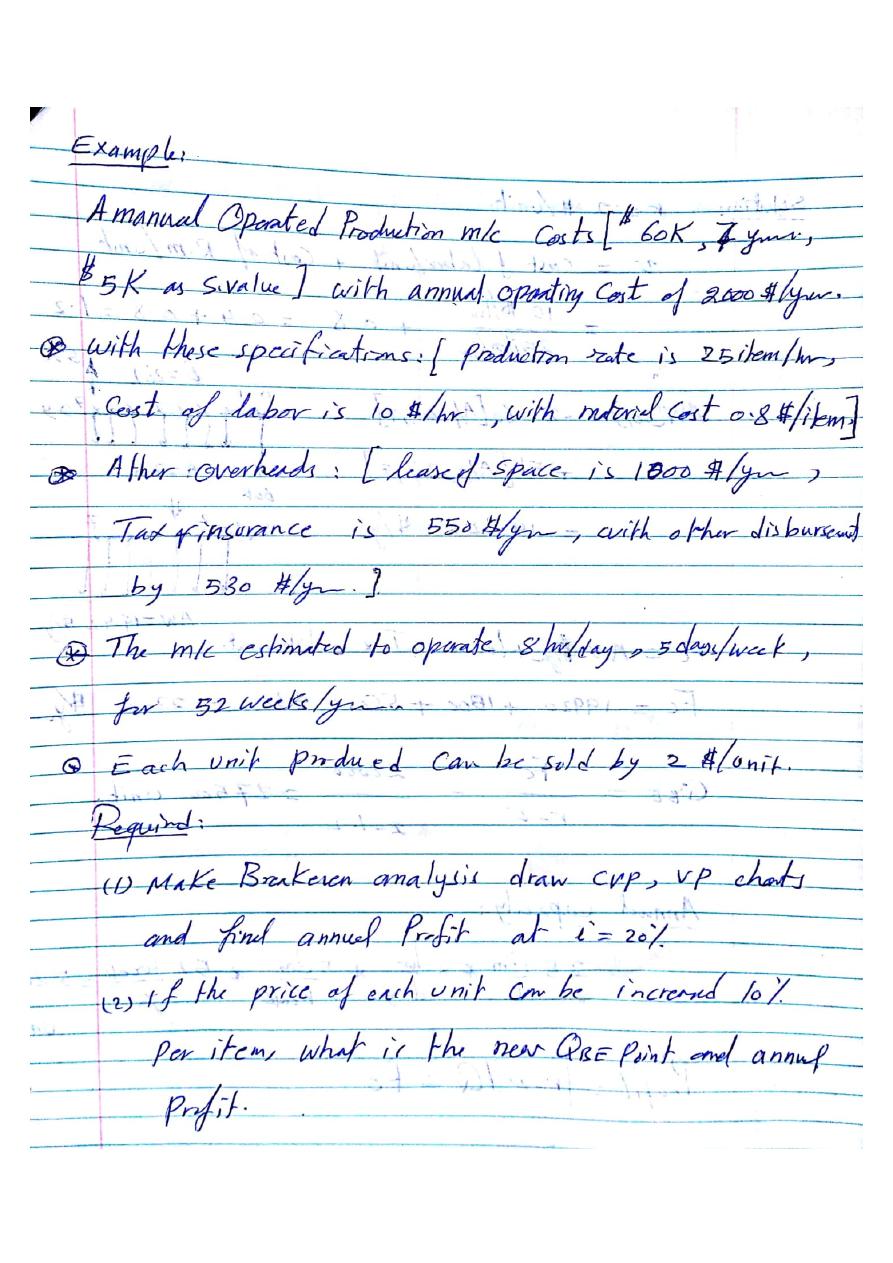 Example:
A manual Operated Production m/c Costs [ $ 60K, 7 years,
$ 5K as S.value ] with annual operating Cost of 2000 $/year.
⊛ with these specifications: [ Production rate is 25 item/hr,
Cost of labor is 10 $/hr, with material Cost 0.8 $/item ]
⊛ Other overheads : [ lease of space is 1800 $/yr,
Tax & insurance is 550 $/yr, with other disbursement
by 530 $/yr. ]
⊛ The m/c estimated to operate 8 hr/day, 5 days/week,
for 52 weeks/yr.
⊙ Each unit produed Can be sold by 2 $/unit.
Required:
(1) Make Breakeven analysis draw CVP, VP charts
and find annual Profit at i = 20%
(2) If the price of each unit Can be increased 10%
Per item, what is the new QBE Point and annual
Profit.